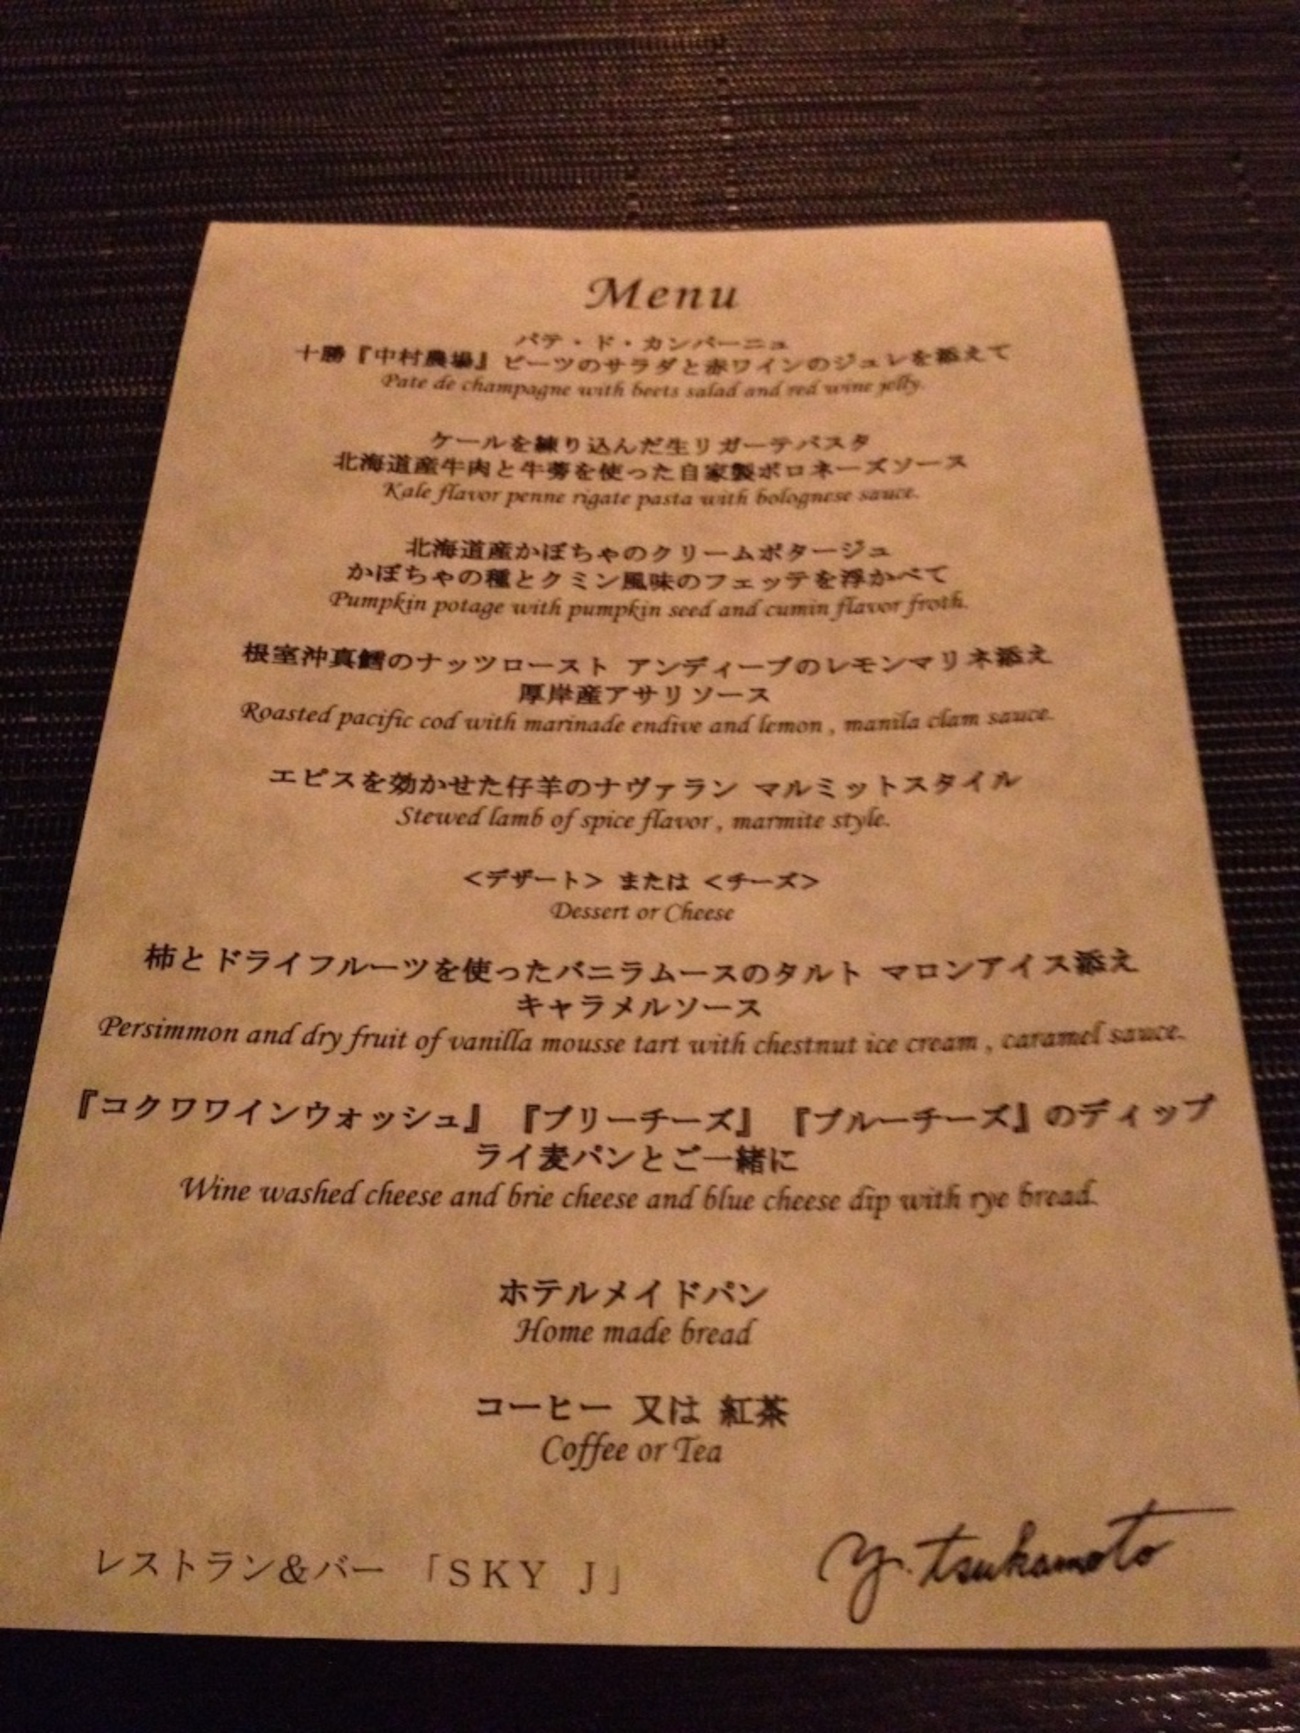 Menu
パテ・ド・カンパーニュ
十勝『中村農場』ビーツのサラダと赤ワインのジュレを添えて
Pate de champagne with beets salad and red wine jelly.
ケールを練り込んだ生リガーテパスタ
北海道産牛肉と牛蒡を使った自家製ボロネーズソース
Kale flavor penne rigate pasta with bolognese sauce.
北海道産かぼちゃのクリームポタージュ
かぼちゃの種とクミン風味のフェッテを浮かべて
Pumpkin potage with pumpkin seed and cumin flavor froth.
根室沖真鱈のナッツロースト アンディーブのレモンマリネ添え
厚岸産アサリソース
Roasted pacific cod with marinade endive and lemon , manila clam sauce.
エピスを効かせた仔羊のナヴァラン マルミットスタイル
Stewed lamb of spice flavor , marmite style.
＜デザート＞ または ＜チーズ＞
Dessert or Cheese
柿とドライフルーツを使ったバニラムースのタルト マロンアイス添え
キャラメルソース
Persimmon and dry fruit of vanilla mousse tart with chestnut ice cream , caramel sauce.
『コクワワインウォッシュ』『ブリーチーズ』『ブルーチーズ』のディップ
ライ麦パンとご一緒に
Wine washed cheese and brie cheese and blue cheese dip with rye bread.
ホテルメイドパン
Home made bread
コーヒー 又は 紅茶
Coffee or Tea
レストラン＆バー 「ＳＫＹ Ｊ」
y. tsukamoto